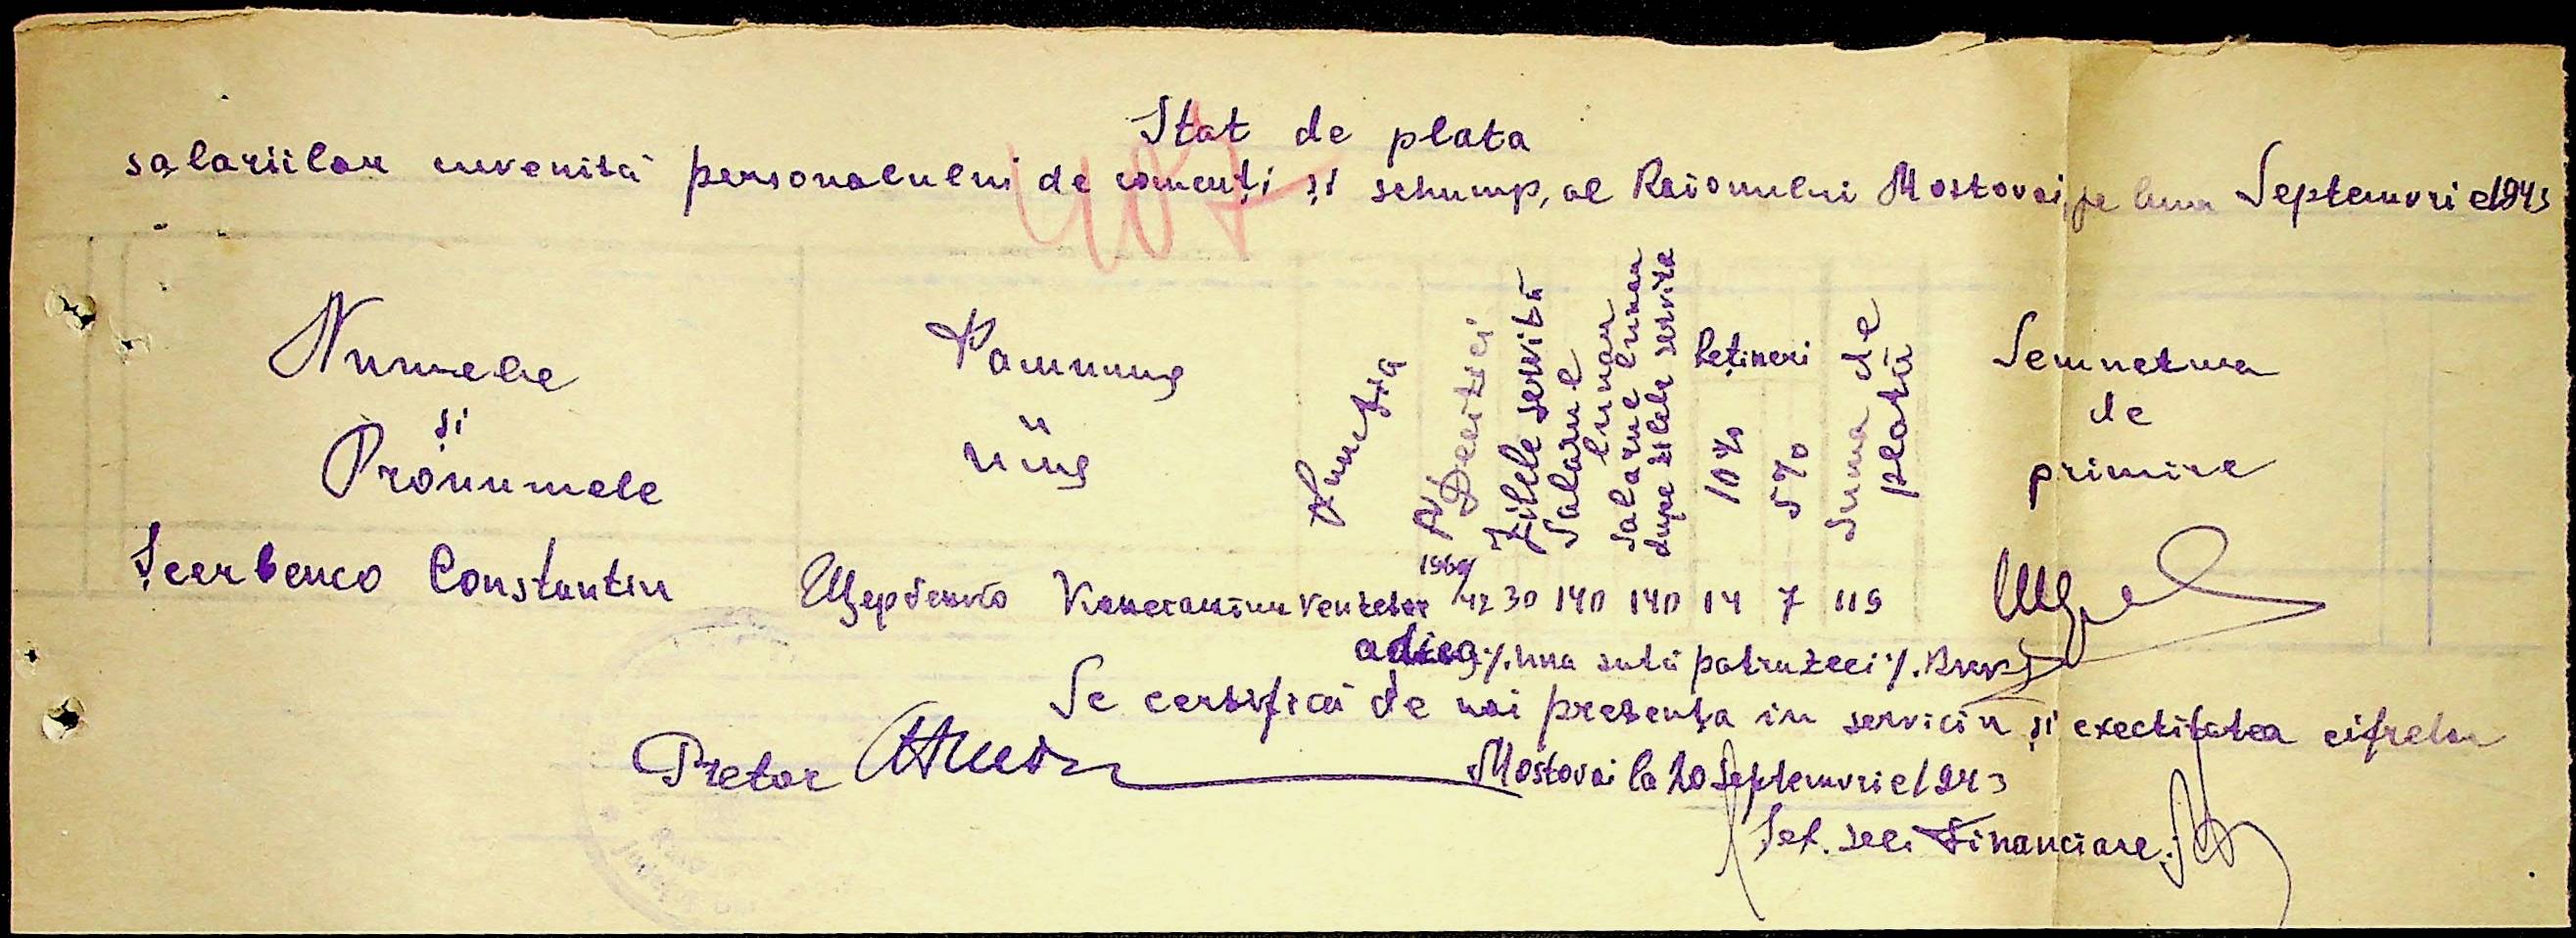 Stat de plata
salariilor cuvenită personalului de comerți și schump, al Raionului Mostovoi, pe luna Septemvrie 1943
407
Numele
și
Pronumele
Фамилия
и
имя
Funcția
№ Deciziei
Zilele servită
Salarul lunar
Salarul lunar dupe zilele servita
Rețineri
10%
5%
Suma de plată
Semnetura
de
primire
Șcerbenco Constantin Щербенко Константин Venzetor 1969/42 30 140 140 14 7 119
adica %. una sută patruzeci %.
Se certifică de noi prezența in serviciu și exectitatea cifrelor
Pretor Mostovoi la 20 Septemvrie 1943
Șef. Seci Financiare